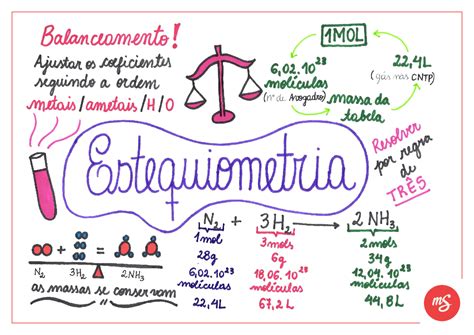 Balanceamento!
Ajustar os coeficientes
seguindo a ordem
metais/ametais/H/O
1MOL
6,02.10²³
moléculas
(nº de Avogadro)
22,4L
(gás nas CNTP)
massa da
tabela
Resolver
por regra
de
TRÊS
Estequiometria
N₂ + 3H₂ → 2 NH₃
1mol 3mols 2mols
28g 6g 34g
6,02.10²³ 18,06.10²³ 12,04.10²³
moléculas moléculas moléculas
22,4L 67,2L 44,8L
+ =
N₂ 3H₂ 2NH₃
as massas se conservam
mS